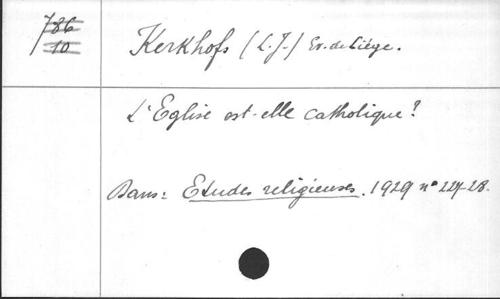 786
10
Kerkhofs (L.J.) Ev. de Liége.
L'Eglise est-elle catholique?
Dans: Etudes religieuses. 1929 n° 227-28.